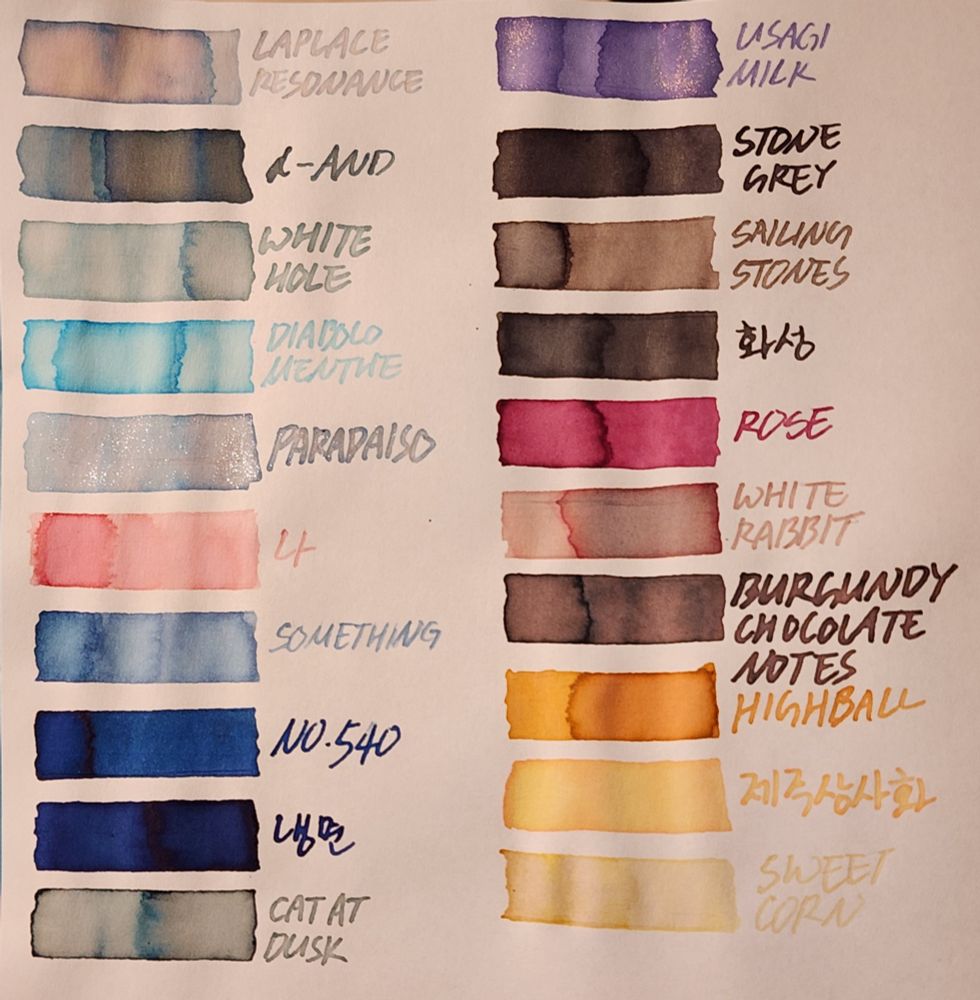 LAPLACE
RESONANCE
α-AND
WHITE
HOLE
DIABOLO
MENTHE
PARADAISO
4
SOMETHING
NO.540
냉면
CAT AT
DUSK
USAGI
MILK
STONE
GREY
SAILING
STONES
화성
ROSE
WHITE
RABBIT
BURGUNDY
CHOCOLATE
NOTES
HIGHBALL
제주상사화
SWEET
CORN